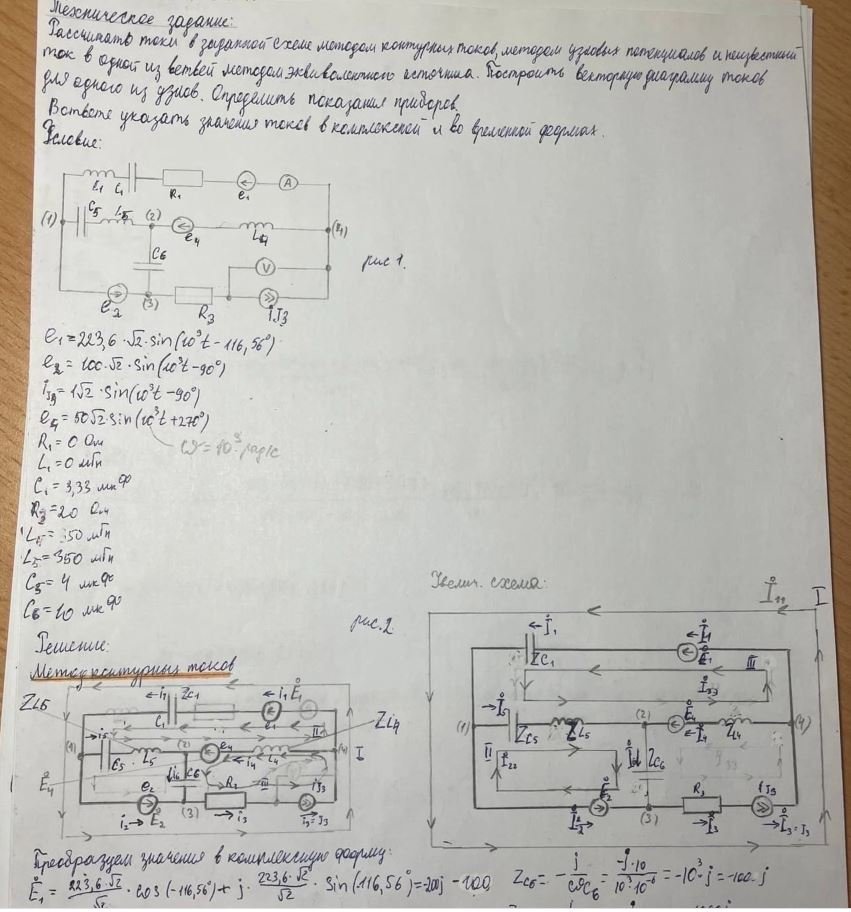 Техническое задание:
Рассчитать токи в заданной схеме методом контурных токов, методом узловых потенциалов и неизвестный
ток в одной из ветвей методом эквивалентного источника. Построить векторную диаграмму токов
для одного из узлов. Определить показания приборов.
В ответе указать значения токов в комплексной и во временной формах.
Условие:
L1 C1 R1 e1 A
(1) C5 L5 (2) e4 L4 (4)
C6 V
e2 (3) R3 iJ3
рис 1.
e1=223,6·√2·sin(10³t-116,56°)
e2=100·√2·sin(10³t-90°)
iJ3=1√2·sin(10³t-90°)
e4=50√2·sin(10³t+270°)
ω=10³ рад/с
R1=0 Ом
L1=0 мГн
C1=3,33 мкФ
R3=20 Ом
L4=350 мГн
L5=350 мГн
C5=4 мкФ
C6=10 мкФ
Решение:
рис.2
Метод контурных токов
Увелич. схема:
ZL5 i1 ZC1 i1 E1
C1 e1 ZL4
(1) i5 C5 L5 (2) e4 i4 L4 (4) I
E4 i6 C6 R3 III iJ3
i2 e2 E2 (3) i3 i3=J3
I11 I
I1 ZC1 I1 E1 III
I33
(1) I5 ZC5 ZL5 (2) E4 I4 ZL4 (4)
II I22 I6 ZC6 I33
I2 E2 (3) R3 I3 iJ3 I3=J3
Преобразуем значения в комплексную форму:
E1=223,6·√2/√2·cos(-116,56°)+j·223,6·√2/√2·sin(-116,56°)=-200j-100 ZC6=-j/ωC6=-j·10/10³·10⁻⁶=-10³·j=-100·j